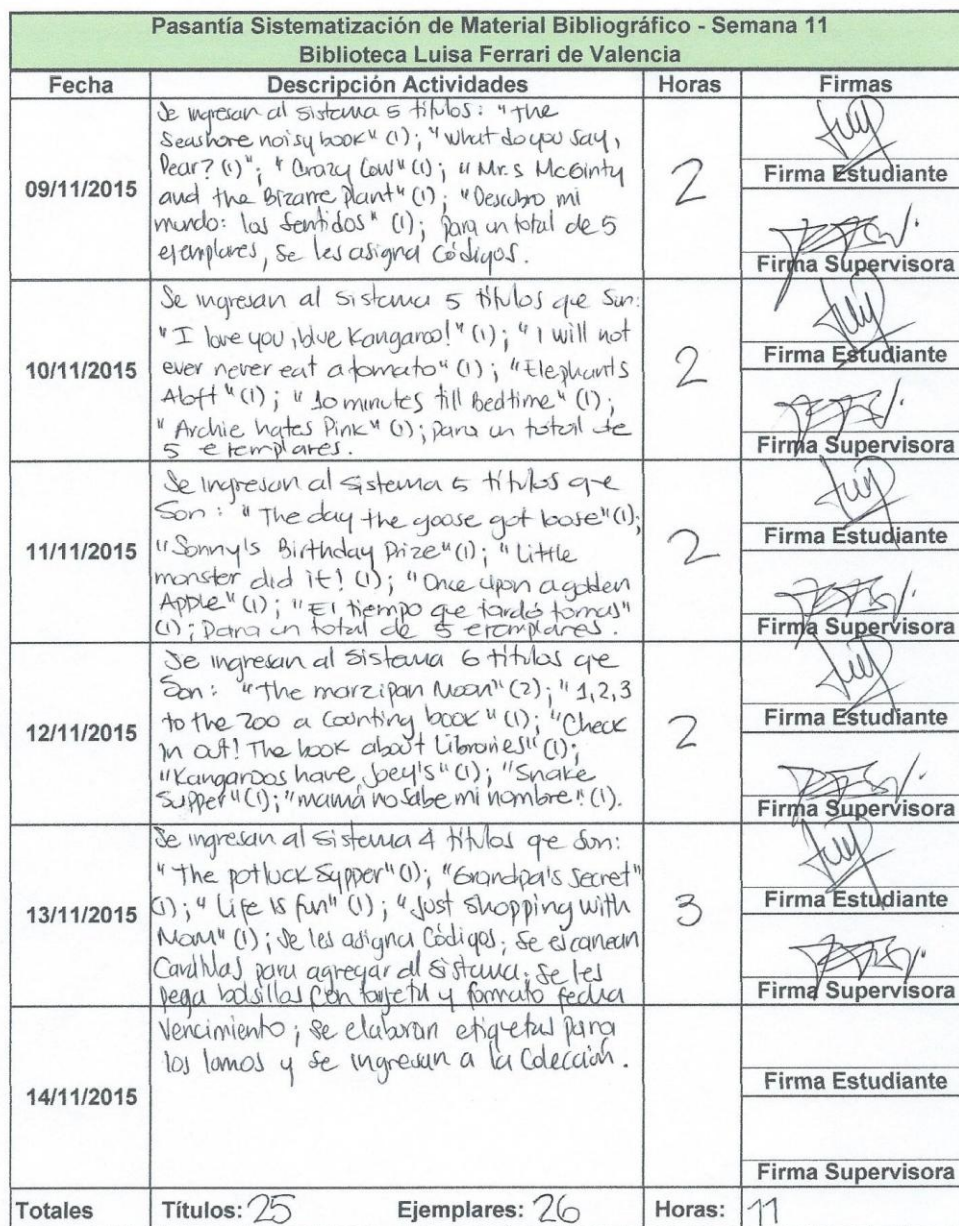 Pasantía Sistematización de Material Bibliográfico - Semana 11
Biblioteca Luisa Ferrari de Valencia
Fecha Descripción Actividades Horas Firmas
09/11/2015
Se ingresan al sistema 5 títulos: "The
Seashore noisy book" (1); "What do you say,
Dear? (1)"; "Crazy Cow" (1); "Mr.s McGinty
and the Bizarre Plant" (1); "Descubro mi
mundo: los sentidos" (1); para un total de 5
ejemplares, se les asigna códigos.
2
Firma Estudiante
Firma Supervisora
10/11/2015
Se ingresan al sistema 5 títulos que son:
"I love you, blue Kangaroo!" (1); "I will not
ever never eat a tomato" (1); "Elephants
Aloft" (1); "10 minutes till Bedtime" (1);
"Archie hates Pink" (1); para un total de
5 ejemplares.
2
Firma Estudiante
Firma Supervisora
11/11/2015
Se ingresan al sistema 5 títulos que
son: "The day the goose got loose" (1);
"Sonny's Birthday Prize" (1); "Little
monster did it! (1); "Once upon a golden
Apple" (1); "El tiempo que tardó tomas"
(1); para un total de 5 ejemplares.
2
Firma Estudiante
Firma Supervisora
12/11/2015
Se ingresan al sistema 6 títulos que
son: "The marzipan Moon" (2); "1,2,3
to the zoo a counting book" (1); "Check
in out! The book about Libraries" (1);
"Kangaroos have Joey's" (1); "Snake
Supper" (1); "mamá no sabe mi nombre" (1).
2
Firma Estudiante
Firma Supervisora
13/11/2015
Se ingresan al sistema 4 títulos que son:
"The potluck Supper" (1); "Grandpa's secret"
(1); "Life is fun" (1); "Just shopping with
Mom" (1); se les asigna códigos; se escanean
para agregar al sistema. se les
pega bolsillos con tarjeta y formato fecha
3
Firma Estudiante
Firma Supervisora
14/11/2015
Vencimiento; se elaboran etiquetas para
los lomos y se ingresan a la Colección.
Firma Estudiante
Firma Supervisora
Totales Títulos: 25 Ejemplares: 26 Horas: 11